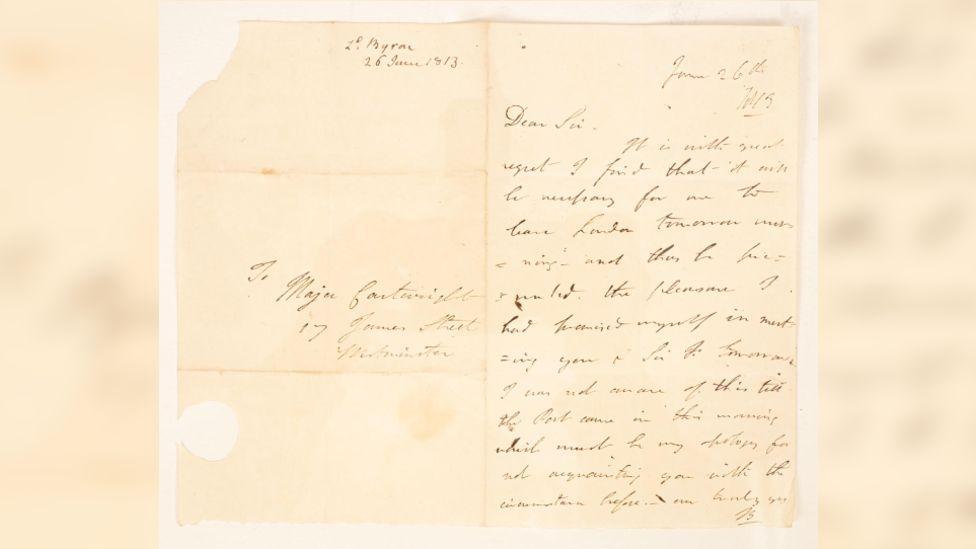 Ld. Byron
26 June 1813.
To
Major Cartwright
17 James Street
Westminster
June 26th
1813
Dear Sir.
It is with great
regret I find that it will
be necessary for me to
leave London tomorrow mor-
=ning - and thus be pre=
=vented. the pleasure I
had promised myself in meet-
=ing you & Sir F. tomorrow.
I was not aware of this till
the Post came in this morning
which must be my apology for
not acquainting you with the
circumstance before. - truly yrs
B